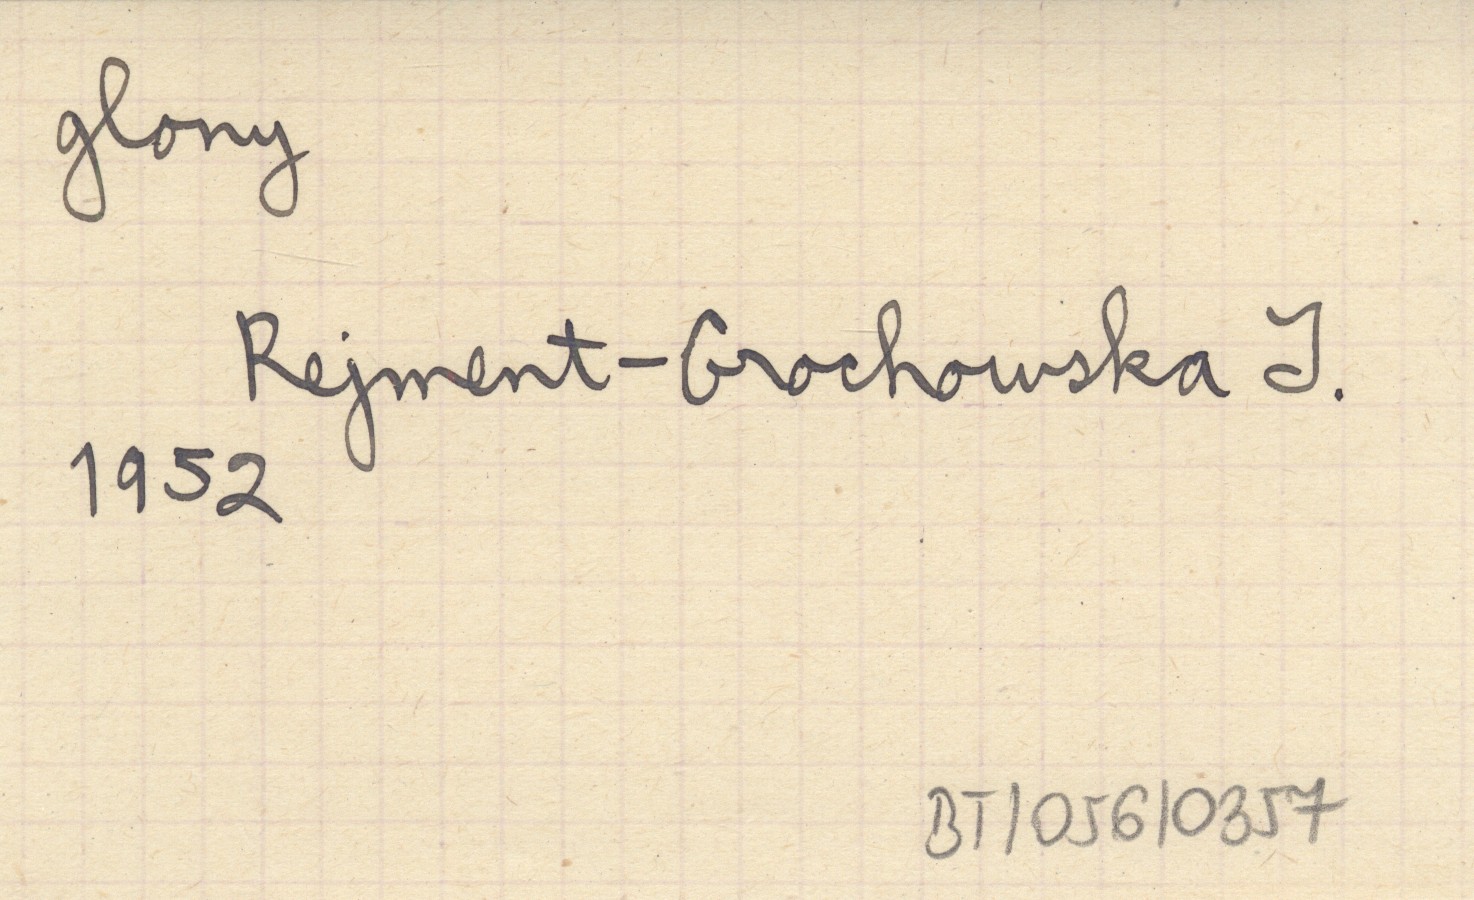 glony
Rejment-Grochowska I.
1952
BT/056/0357